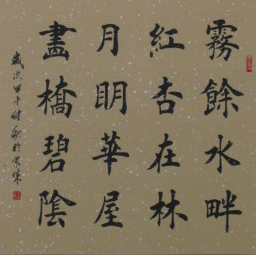 霧餘水畔
紅杏在林
月明華屋
畫橋碧陰
歲次甲午